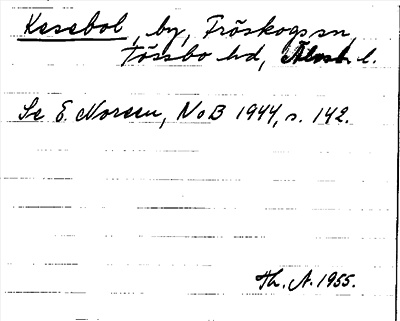 Kesebol, by, Fröskogs sn,
Tössbo hd, Älvsb. l.
Se E. Noreen, NoB 1944, s. 142.
Th. A. 1955.